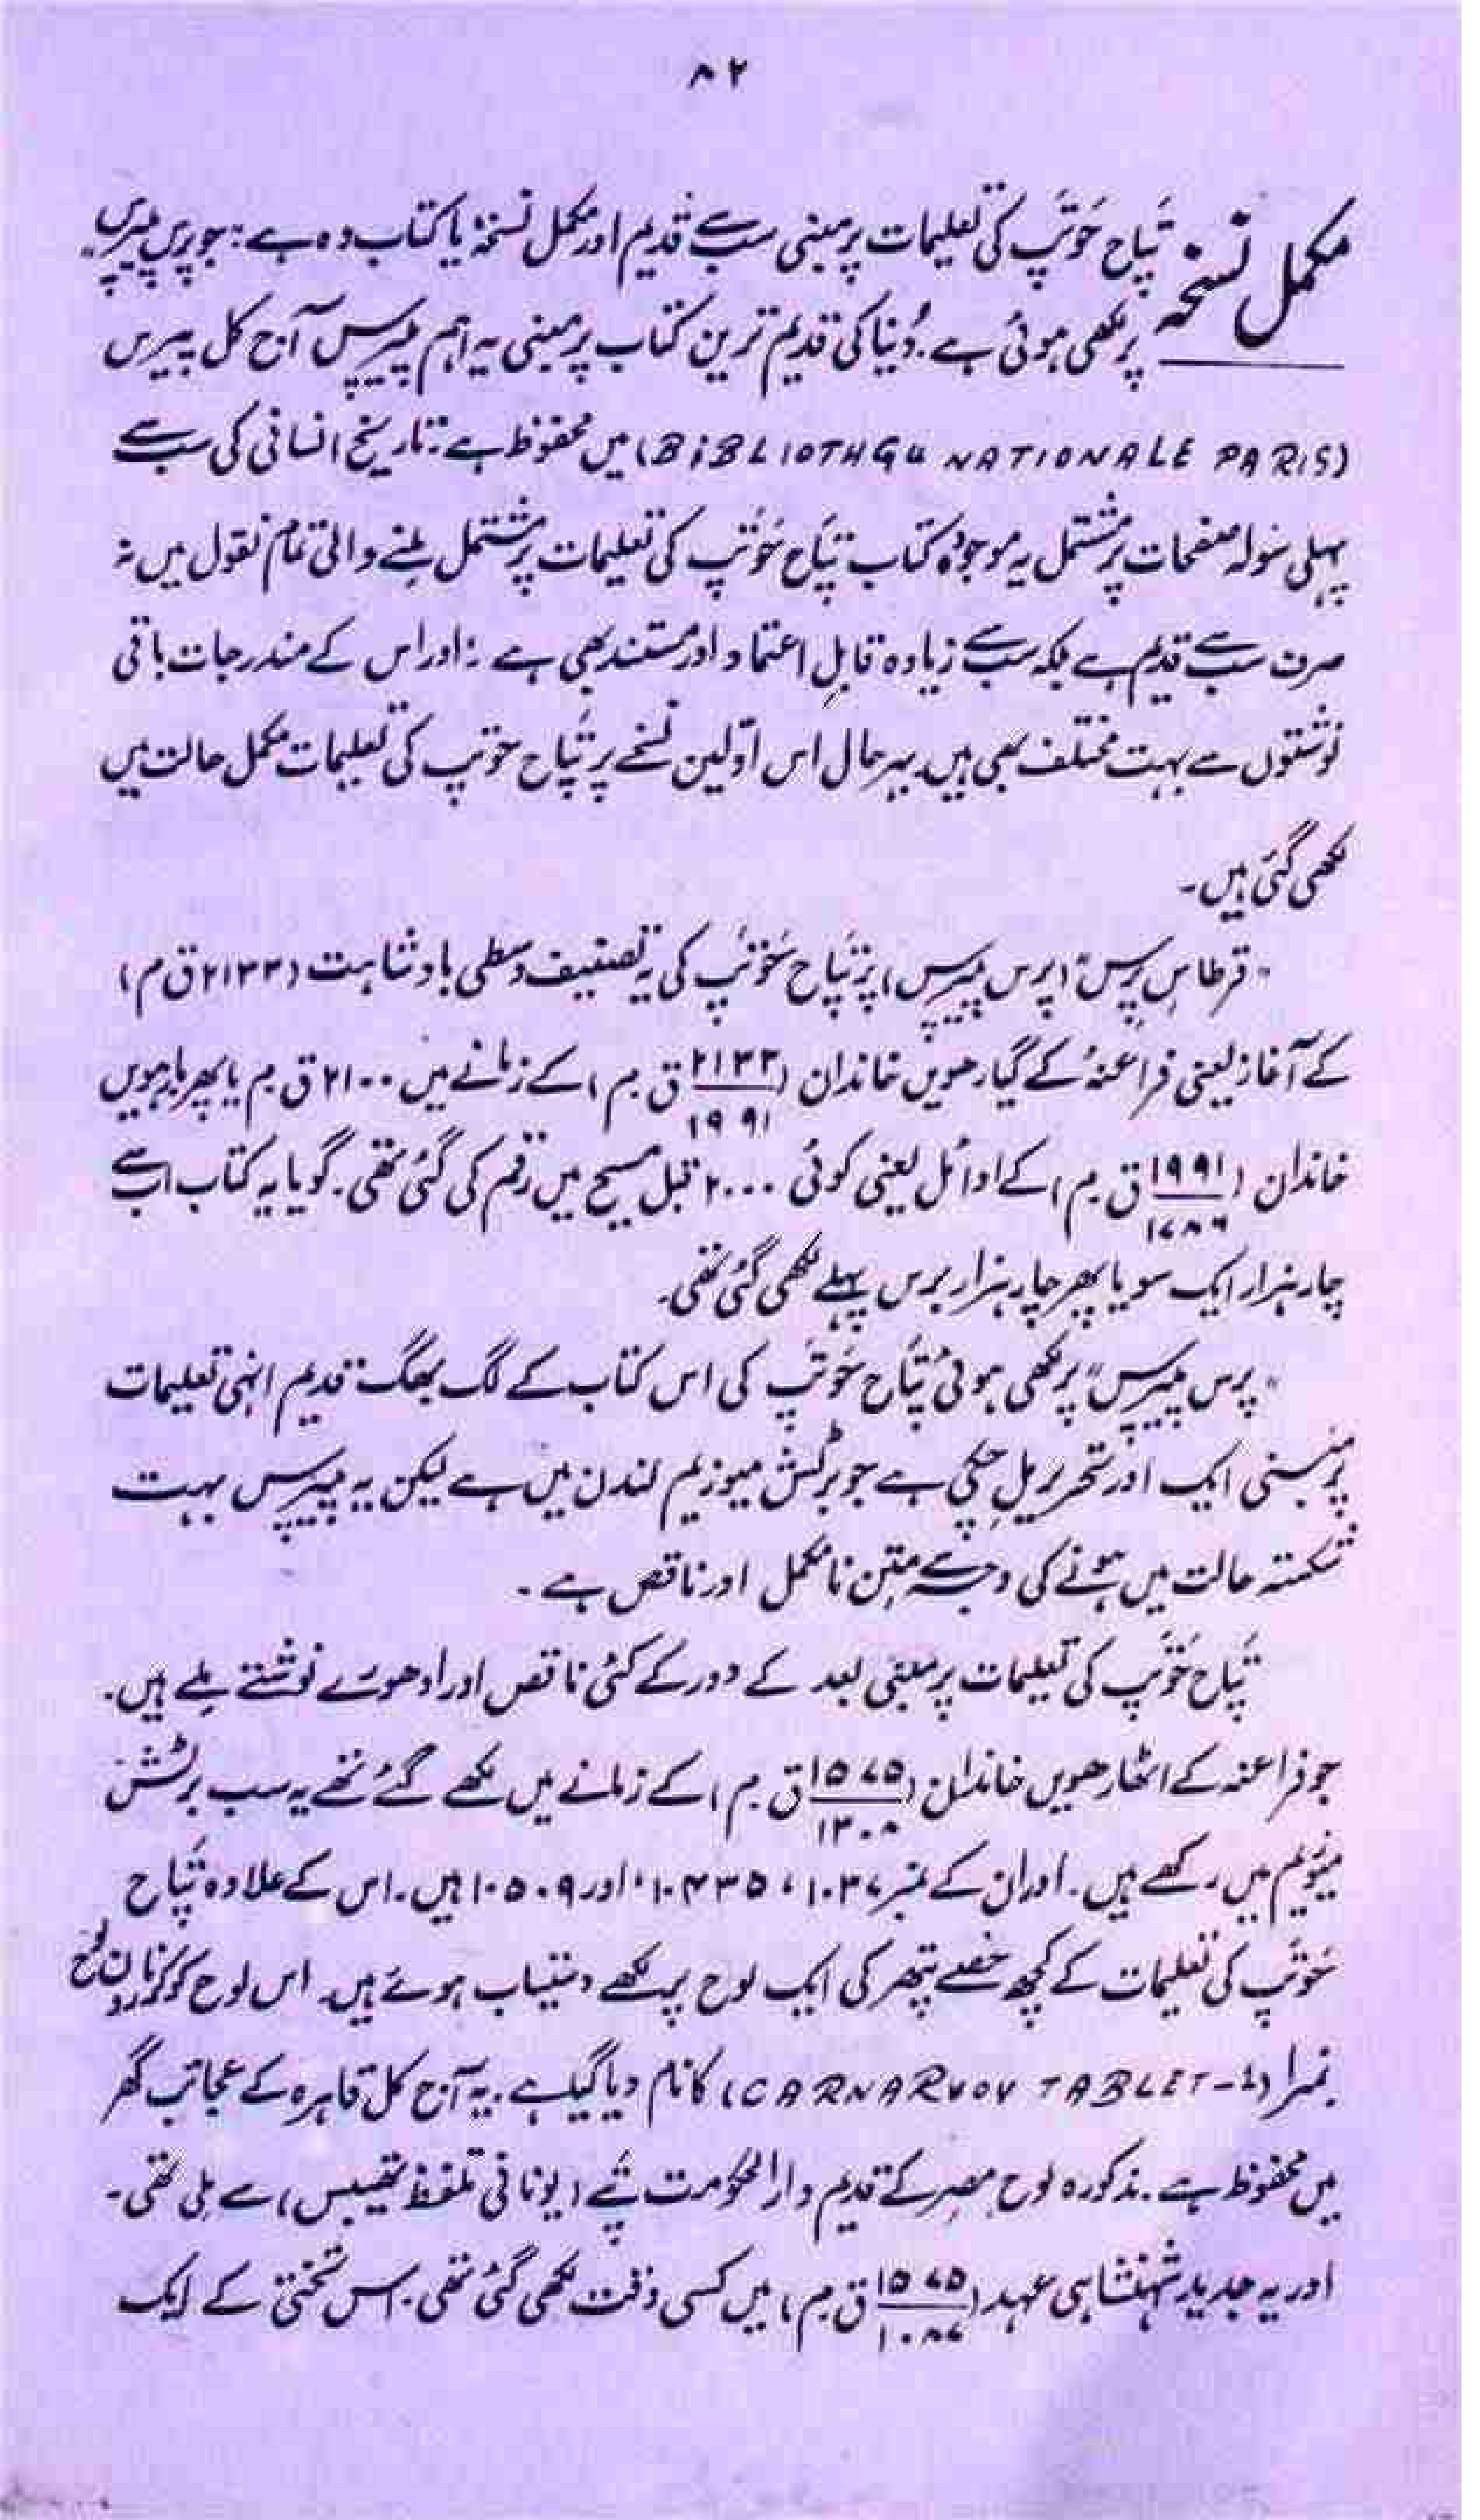 ۸۲
مکمل نسخہ پتاح حَوتَپ کی تعلیمات پر مبنی سب سے قدیم اور مکمل نسخہ یا کتاب وہ ہے : جو پرس پیپرس
پر لکھی ہوئی ہے۔ دُنیا کی قدیم ترین کتاب پر مبنی یہ اہم پیپرس آج کل پیرس
(BiBLIOTHGU NATIONALE PARIS) میں محفوظ ہے : تاریخ انسانی کی سب سے
پہلی سولہ صفحات پر مشتمل یہ موجودہ کتاب پتاح حَوتَپ کی تعلیمات پر مشتمل ملنے والی تمام نقول میں نہ
صرف سب سے قدیم ہے بلکہ سب سے زیادہ قابلِ اعتماد اور مستند بھی ہے : اور اس کے مندرجات باقی
نوشتوں سے بہت مختلف بھی ہیں بہرحال اس اوّلین نسخے پر پتاح حوتپ کی تعلیمات مکمل حالت میں
لکھی گئی ہیں۔
"قرطاسِ پرس" (پرس پیپرس) پر پتاح حَوتَپ کی یہ تصنیف وسطی بادشاہت (۲۱۳۳ ق م)
کے آغاز یعنی فراعنہ کے گیارھویں خاندان (۲۱۳۳/۱۹۹۱ ق۔م) کے زمانے میں ۲۱۰۰ ق م یا پھر بارھویں
خاندان (۱۹۹۱/۱۷۸۶ ق۔م) کے اوائل یعنی کوئی ۲۰۰۰ قبل مسیح میں رقم کی گئی تھی۔ گویا یہ کتاب اب سے
چار ہزار ایک سو یا پھر چار ہزار برس پہلے لکھی گئی تھی۔
"پرس پیپرس" پر لکھی ہوئی پتاح حَوتَپ کی اس کتاب کے لگ بھگ قدیم انہی تعلیمات
پر مبنی ایک اور تحریر مل چکی ہے جو برٹش میوزیم لندن میں ہے لیکن یہ پیپرس بہت
شکستہ حالت میں ہونے کی وجہ سے متن نامکمل اور ناقص ہے۔
پتاح حَوتَپ کی تعلیمات پر مبنی بعد کے دور کے کئی ناقص اور ادھورے نوشتے ملے ہیں۔
جو فراعنہ کے اٹھارھویں خاندان (۱۵۷۵/۱۳۰۸ ق۔م) کے زمانے میں لکھے گئے تھے یہ سب برٹش
میوزیم میں رکھے ہیں۔ اور ان کے نمبر ۱۰۳۷، ۱۰۴۳۵، اور ۱۰۵۰۹ ہیں۔ اس کے علاوہ پتاح
حَوتَپ کی تعلیمات کے کچھ حصے پتھر کی ایک لوح پر لکھے دستیاب ہوئے ہیں۔ اس لوح کو کارناروں لوح
نمبر ا (CARNARVOV TABLET-1) کا نام دیا گیا ہے۔ یہ آج کل قاہرہ کے عجائب گھر
میں محفوظ ہے۔ مذکورہ لوح مصر کے قدیم دارالحکومت پتے (یونانی تلفظ تھیبس) سے ملی تھی۔
اور یہ جدید شہنشاہی عہد (۱۵۷۵/۱۰۸۷ ق۔م) میں کسی وقت لکھی گئی تھی۔ اس تختی کے ایک